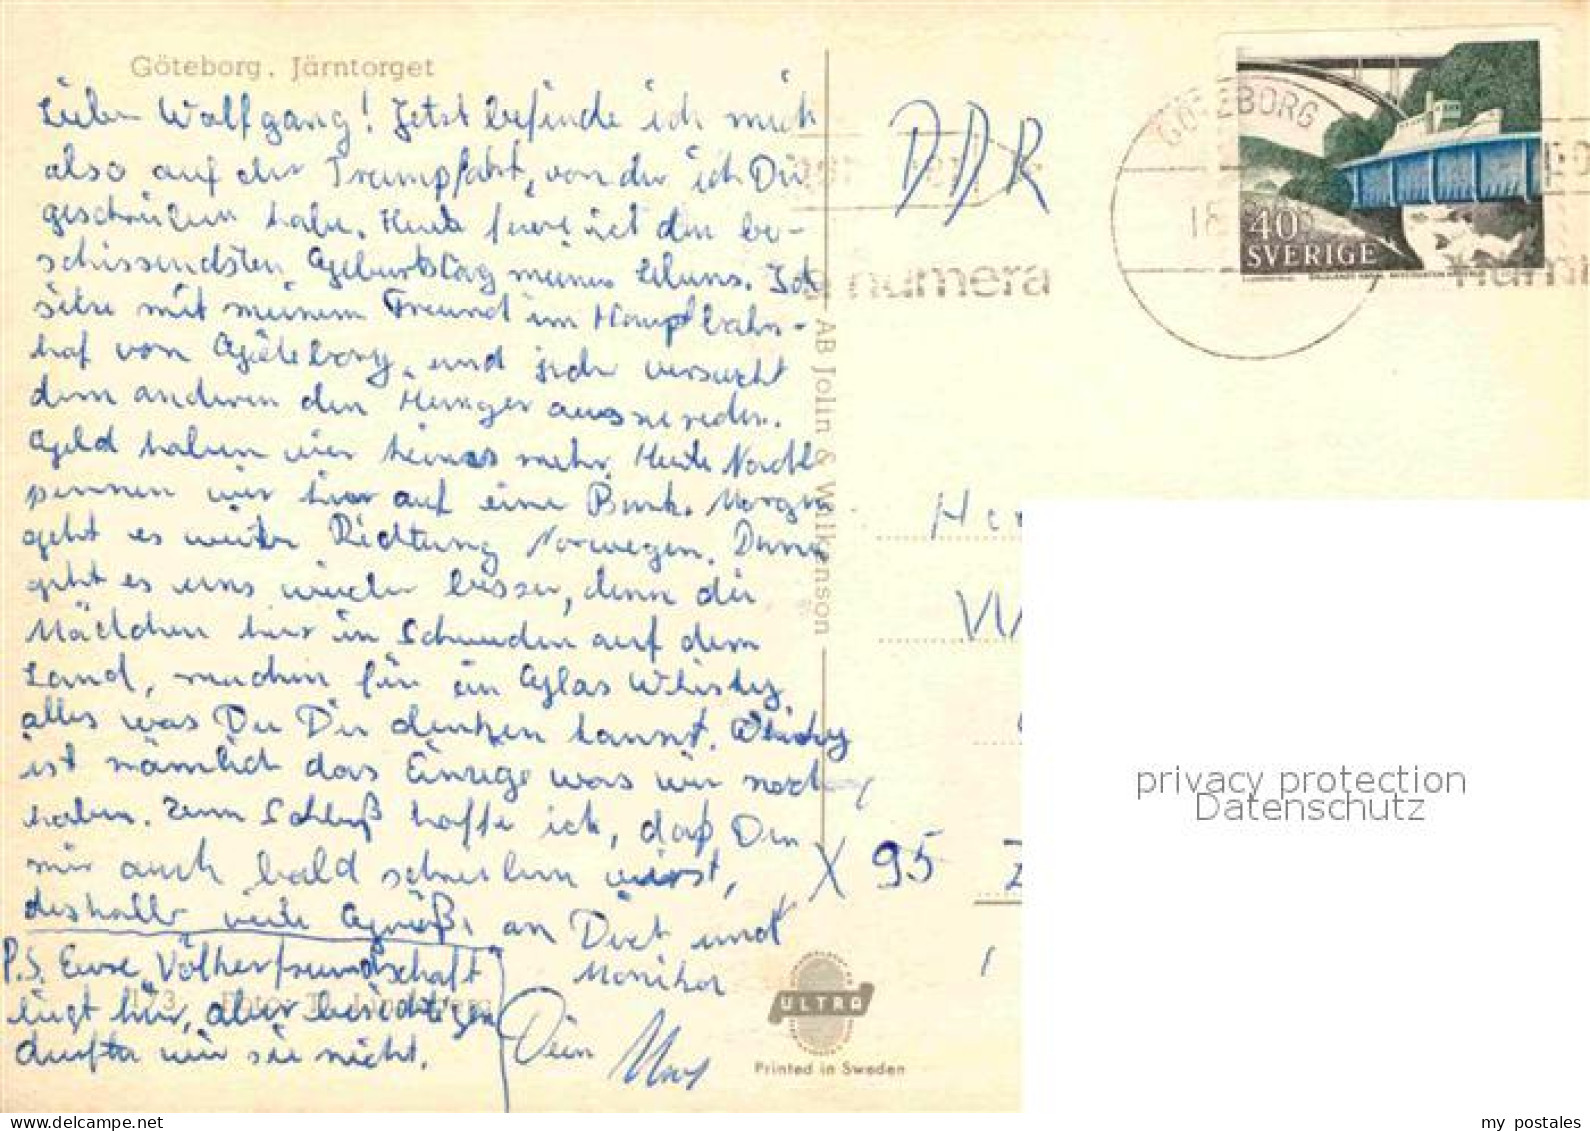 Göteborg. Järntorget
Lieber Wolfgang! Jetzt befinde ich mich
also auf der Trampfahrt, von der ich Dir
geschrieben habe. Heute feiere ich den be-
schissendsten Geburtstag meines Lebens. Ich
sitze mit meinem Freund im Hauptbahn-
hof von Göteborg, und jeder versucht
dem anderen den Hunger auszureden.
Geld haben wir keines mehr. Heute Nacht
pennen wir hier auf eine Bank. Morgen
geht es weiter Richtung Norwegen. Dann
geht es uns wieder besser, denn die
Mädchen hier in Schweden auf dem
Land, machen für ein Glas Whisky
alles was Du Dir denken kannst. Whisky
ist nämlich das Einzige was wir noch
haben. Zum Schluß hoffe ich, daß Du
mir auch bald schreiben wirst,
deshalb viele Grüße an Dich und
Monika
P.S. Eure Völkerfreundschaft
liegt hier, aber besichtigen
durften wir sie nicht.
Dein Max
173 Foto:
AB Jolin & Wilkenson
ULTRA
Printed in Sweden
DDR
GÖTEBORG
numera
40
SVERIGE
X 95
privacy protection
Datenschutz
my postales